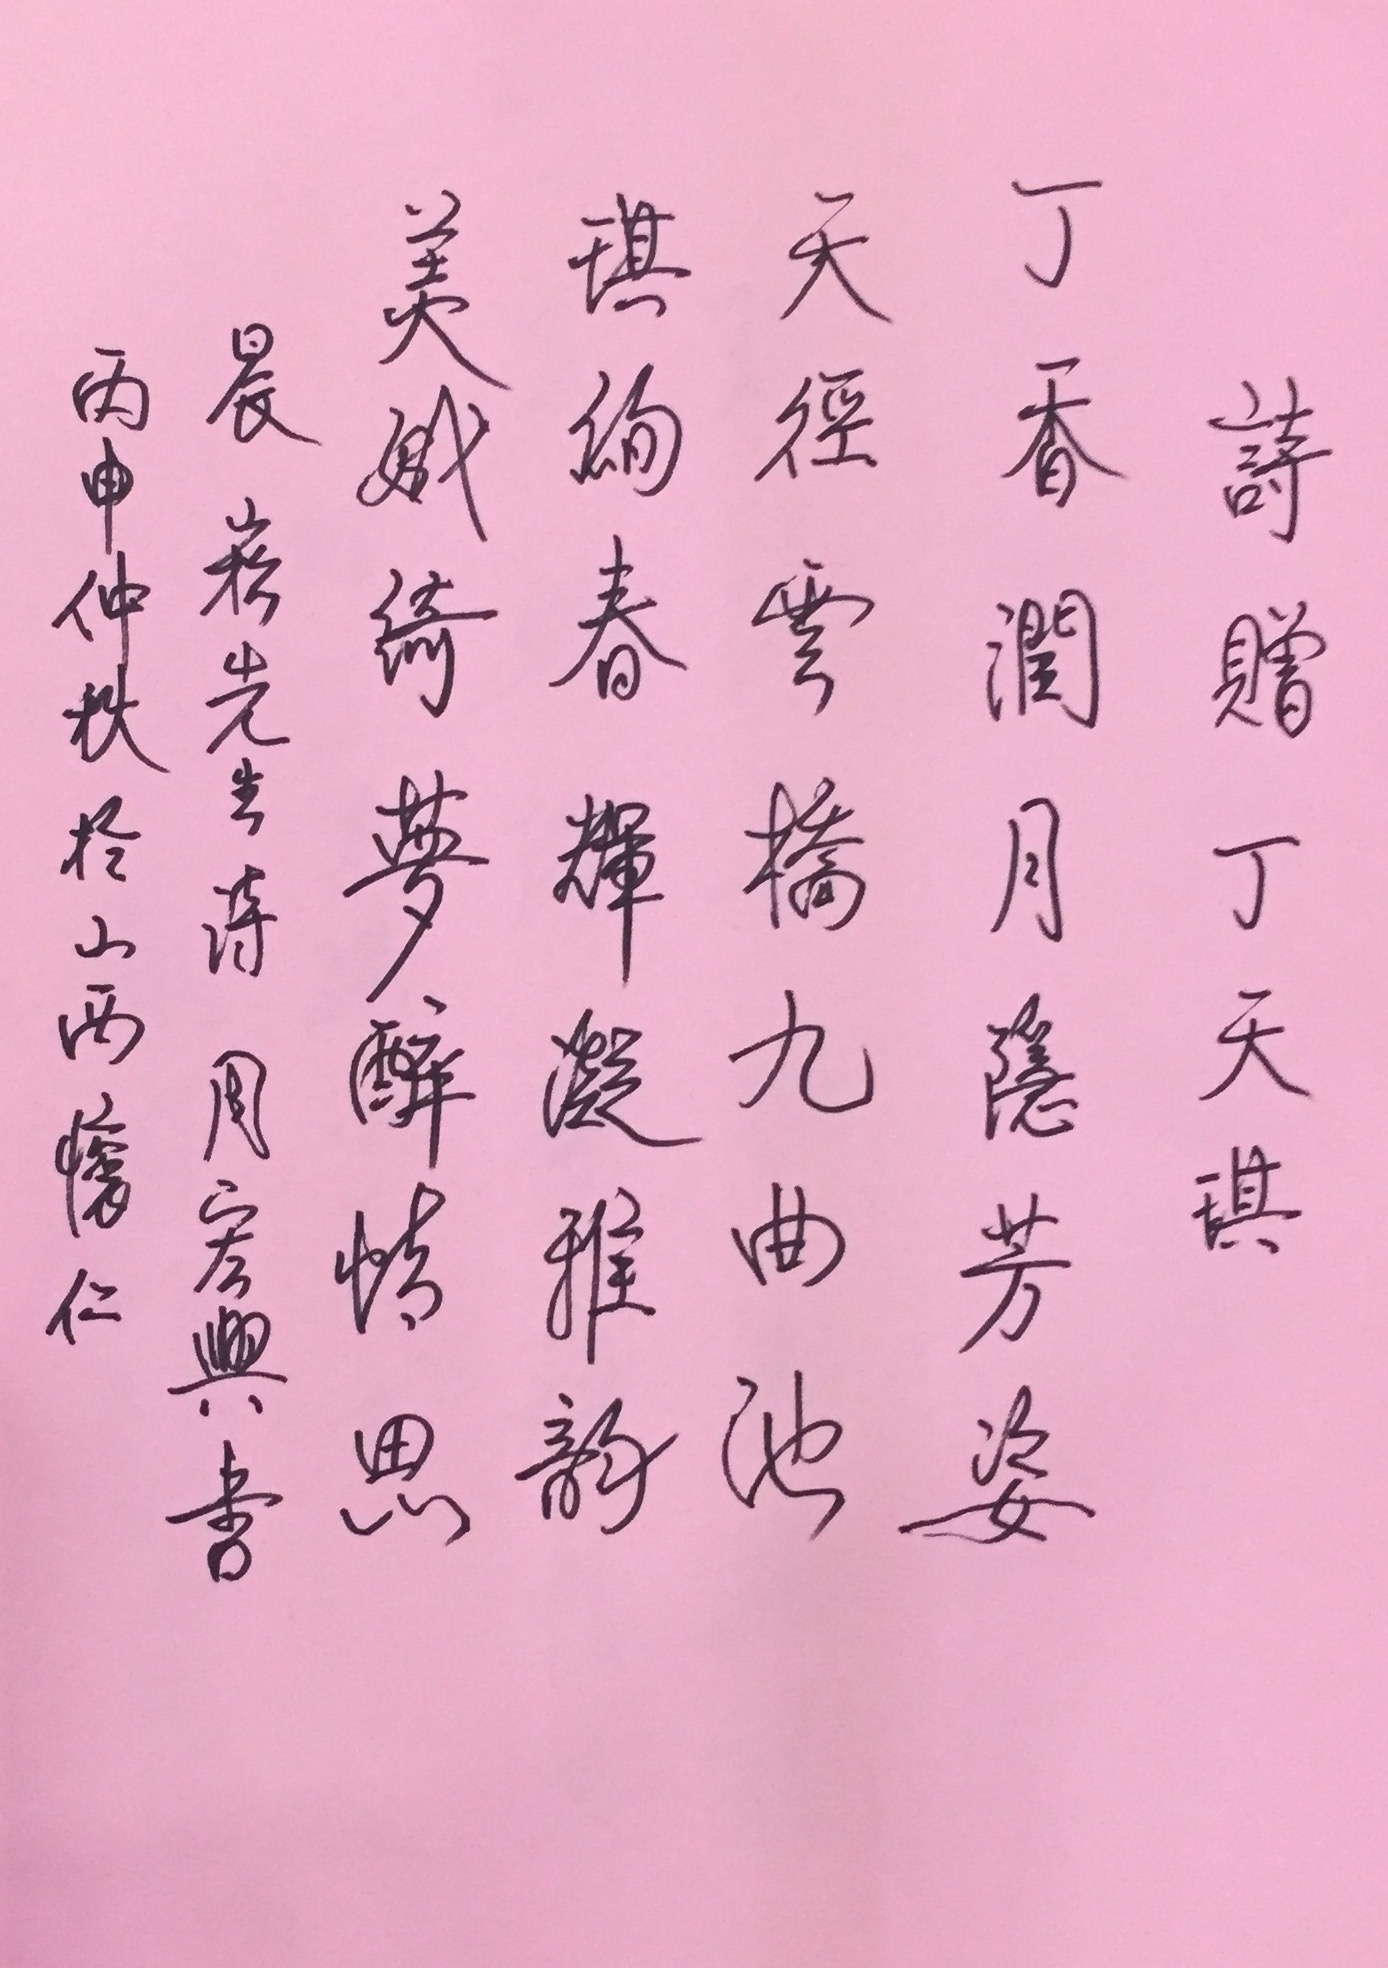 詩贈丁天琪
丁香潤月隱芳姿
天徑雲橋九曲池
琪絢春輝凝雅韵
美娥綺夢醉情思
晨崧先生诗周宏興书
丙申仲秋於山西懷仁